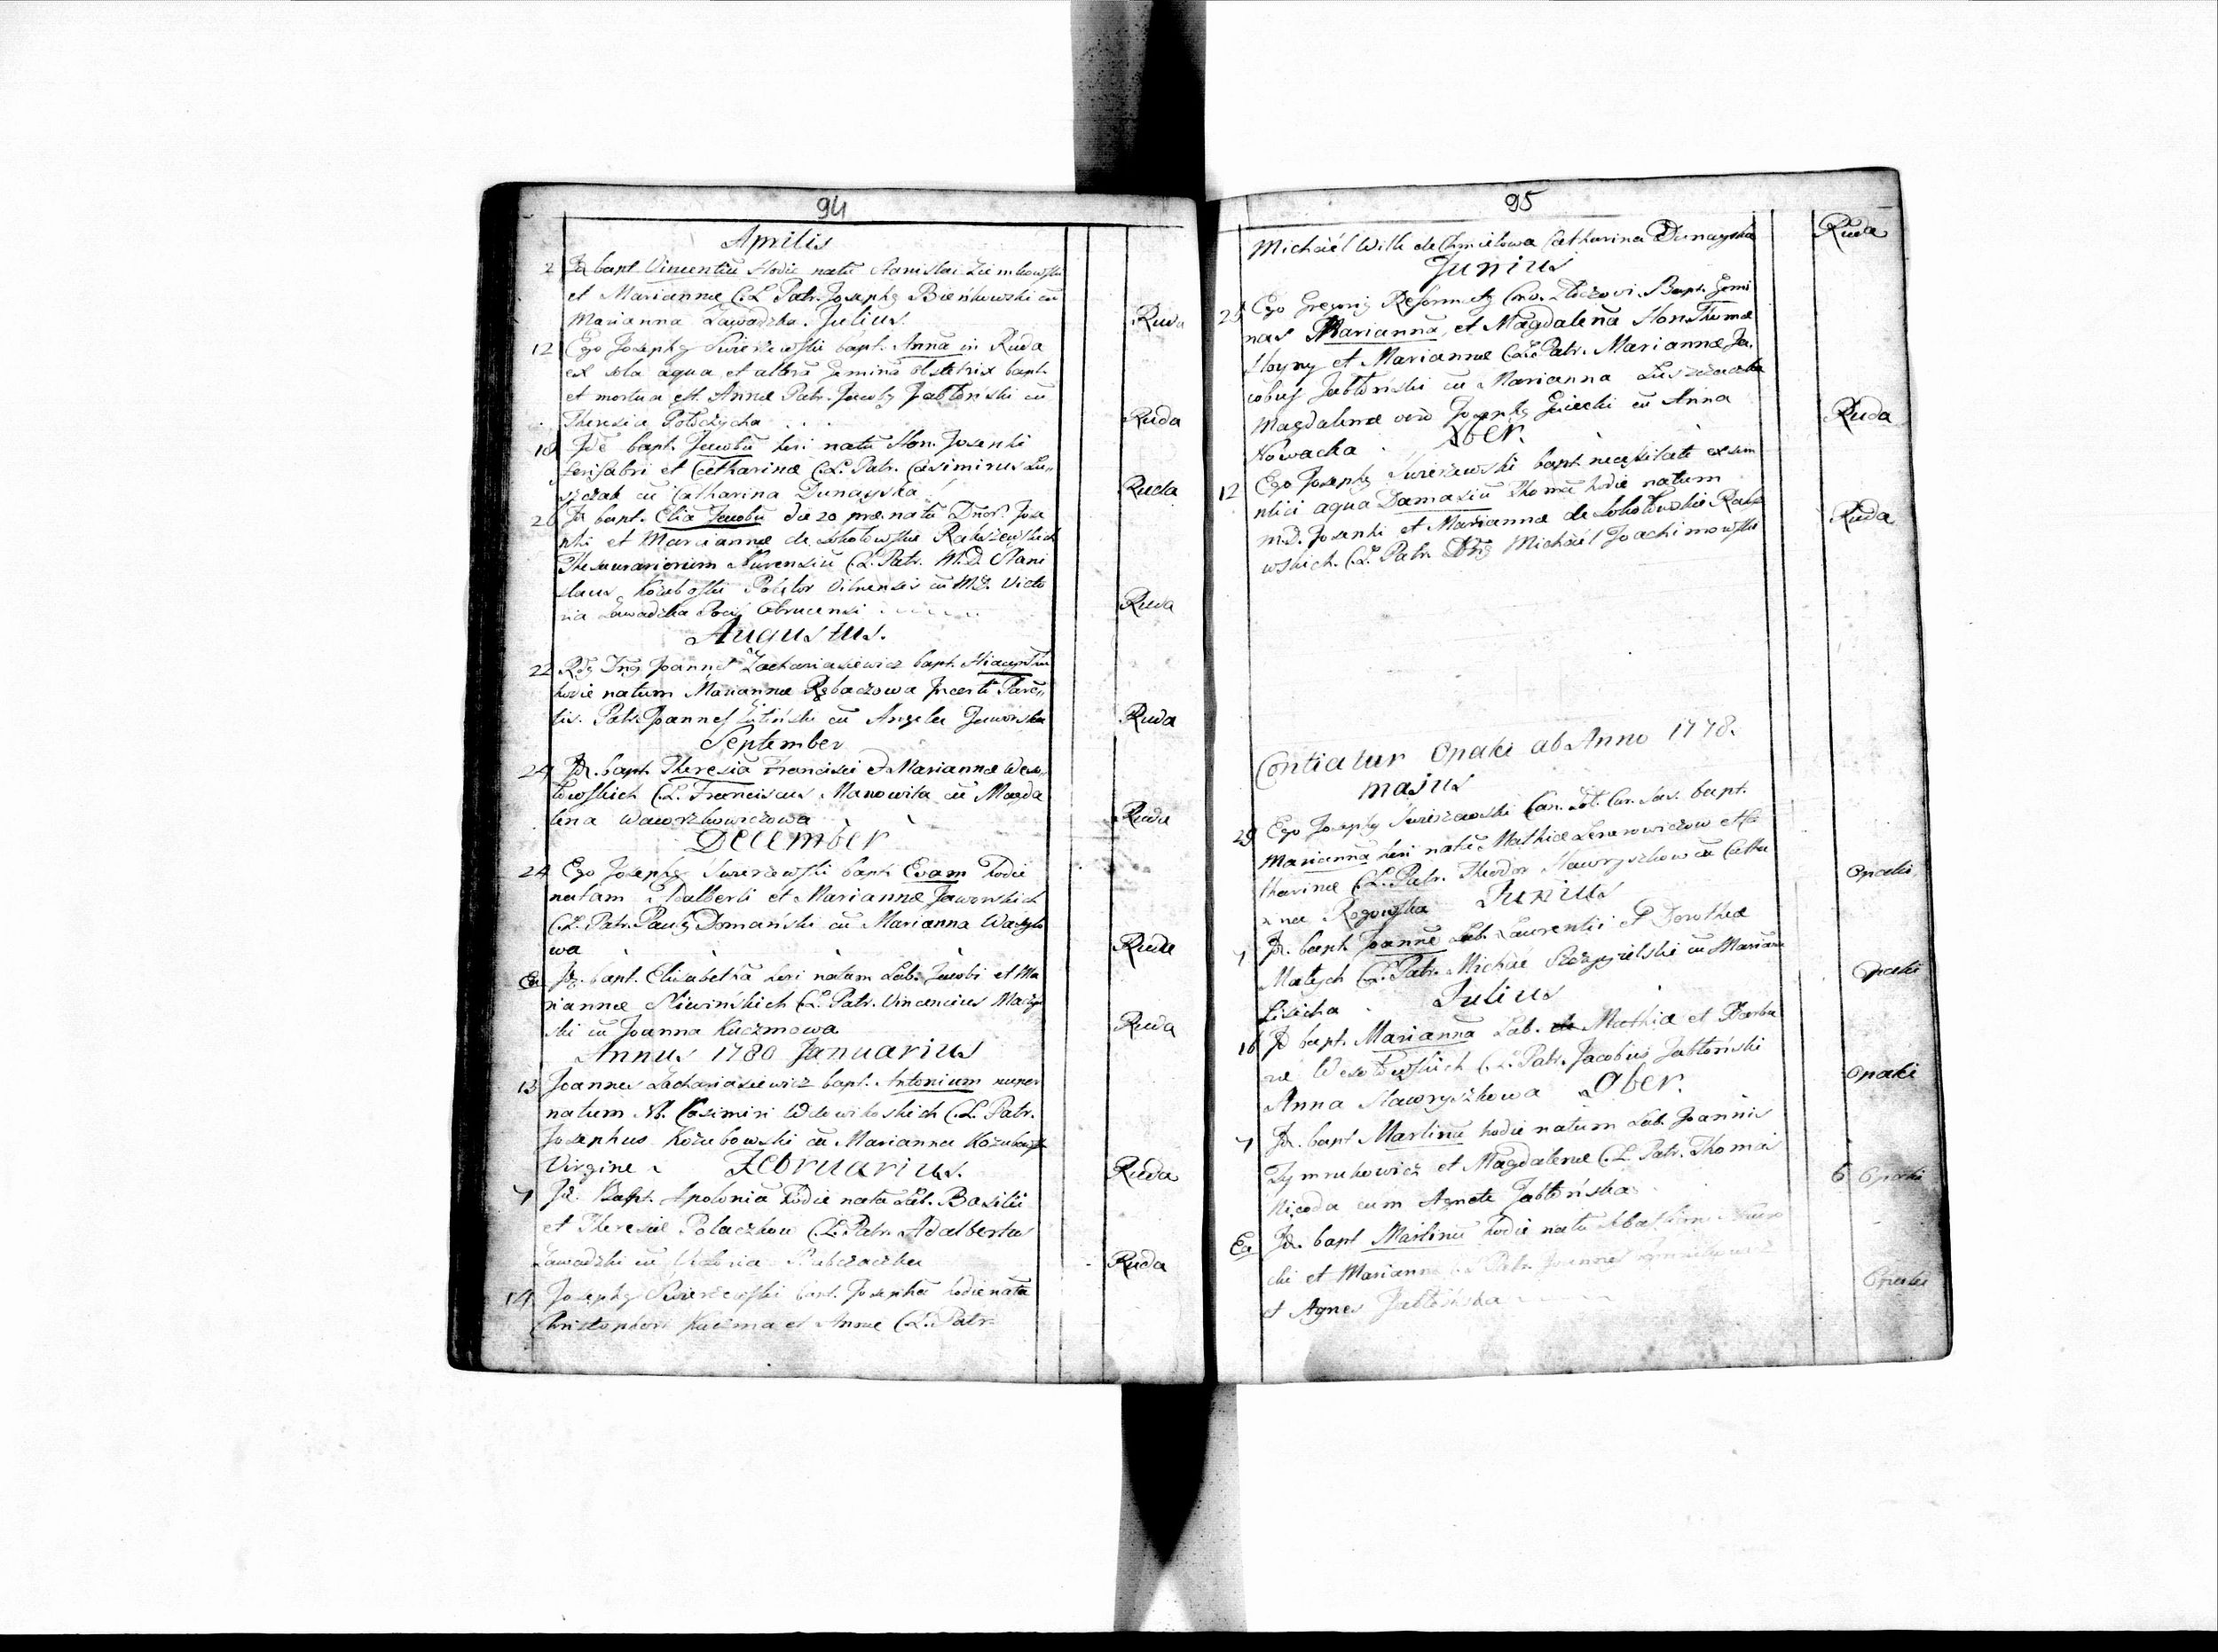 94
Aprilis
2 Id bapt. Vincentiū Hodie natū Stanislai Ziembowski
et Mariannæ C.L. Patr. Josephg Bieńkowski cū
Marianna Zawadzka. Julius. Ruda
12 Ego Josephg Swierzewski bapt. Anna in Ruda
ex sola aqua et altera Gemina obstetrix bapt.
et mortua est. Annæ Patr. Jacobg Jabłoński cū
Theresia Potoczycha Ruda
18 Idē bapt. Jacobū heri natū Hon. Josephi
ferifabri et Catharinæ C.L. Patr. Casimirus Lu
szczak cū Catharina Dunayska Ruda
26 Id bapt. Elia Jacobū die 20 præ. natū Dnor. Jose
phi et Mariannæ de Sokołowskie Rakszewskich
Thesaurariorum Nurensiū C.L. Patr. M.D. Stani
slaus Kozuboski cū M.D. Victo
ria Zawadzka Ruda
Augustus.
22 Rdg Dng Joannes Zachariasiewicz bapt. Hiacyntū
hodie natum Mariannæ Rębaczowa Incerti Paren
tis. Patr. Joannes cū Angela Jaworska Ruda
September
24 Id. bapt. Theresiā Francisci et Mariannæ Weso
łowskich C.L. Franciscus Manowita cū Magda
lena Wawrzkowiczowa Ruda
December
24 Ego Josephg Swierzewski bapt. Evam hodie
natam Adalberti et Mariannæ Jaworskich
C.L. Patr. Paulg Domański cū Marianna Wasyl
wa Ruda
Ea Id. bapt. Elisabethā heri natam Lab. Jacobi et Ma
riannæ Sliwińskich C.L. Patr. Vincencius
ski cū Joanna Kuczmowa Ruda
Annus 1780 Januarius
13 Joannes Zachariasiewicz bapt. Antonium nuper
natum N. Casimiri Wdowikoskich C.L. Patr.
Josephus Kozubowski cū Marianna Kozubowska
Virgine Februarius. Ruda
7 Id. Bapt. Apoloniā hodie natā Lab. Basilii
et Theresiæ Polaczkow C.L. Patr. Adalbertus
Zawadzki cū Ruda
14 Josephg Swierzewski bapt. Josephā hodie natā
Christophori Kuczma et Annæ C.L. Patr.
95
Michaël Wilk de Chmielowa Catharina Dunayska Ruda
Junius
25 Ego Gregorig Reformatg Bapt. Gemi
nas Mariannā, et Magdalenā Hon. Thomæ
Hayny et Mariannæ C.L. Patr. Mariannæ Ja
cobus Jabłoński cū Marianna Luszczacka
Magdalenæ vero Josephg cū Anna
Nowacka Xber. Ruda
12 Ego Josephg Swierzewski bapt. necessitate ex sim
plici aqua Damasiū Thomā hodie natum
M.D. Josephi et Mariannæ de Sokołowskie Raksze
wskich. C.L. Patr. Dng Michaël Joachimowski Ruda
Contiatur Opaki ab Anno 1778.
Majus
29 Ego Josephg Swierzewski Can. bapt.
Mariannā heri natā Mathiæ Lenerowiczow et Ca
tharinæ C.L. Patr. Theodor Hawryszkow cū Catha
rina Rogowska Junius Opaki
7 Id. bapt. Joannē Lab. Laurentii et Dorothea
Małych C.L. Patr. Michāe cū Marianna
Lisicha Julius Opaki
16 Id bapt. Mariannā Lab. Mathiæ et Barba
ræ Wesołowskich C.L. Patr. Jacobus Jabłoński
Anna Hawryszkowa 9ber. Opaki
7 Id. bapt. Martinū hodie natum Lab. Joannis
Tymrukowicz et Magdalenæ C.L. Patr. Thomas
Nicoda cum Agnete Jabłońska 6 Opaki
Ea Id. bapt. Martinū hodie natū
cki et Mariannæ C.L. Patr. Joannes
et Agnes Jabłońska Opaki